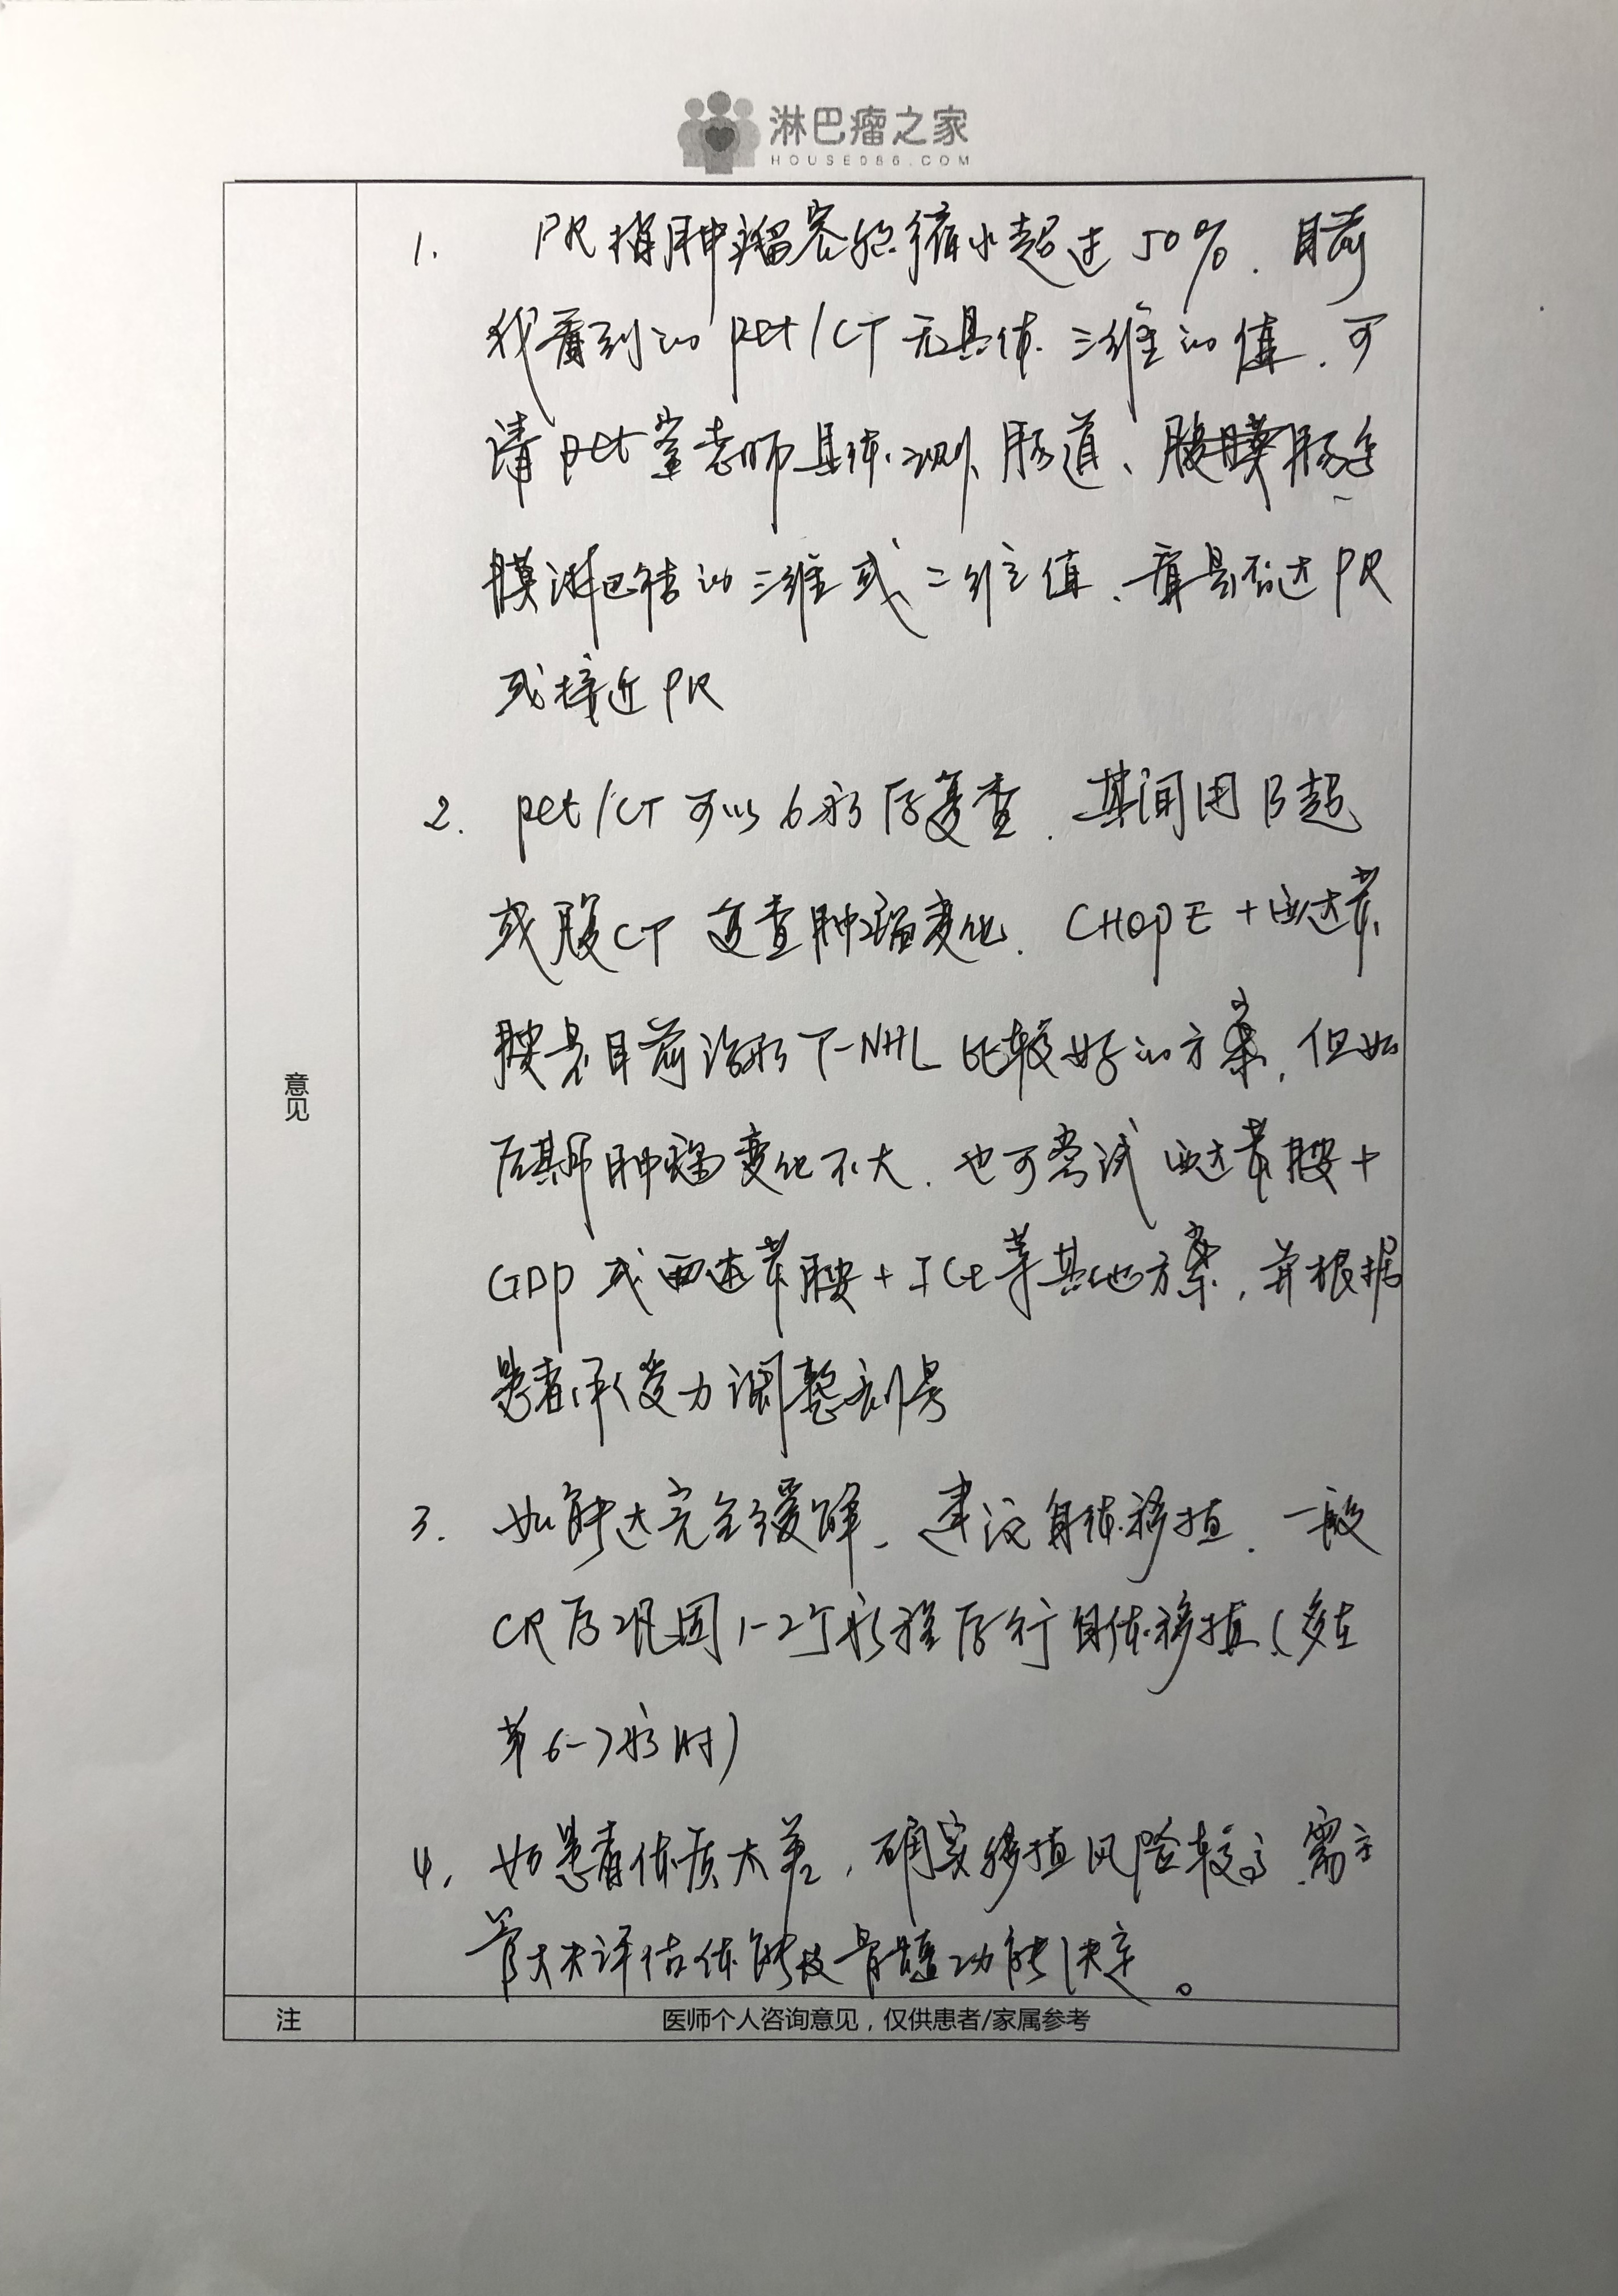 淋巴瘤之家
HOUSE086.COM
意见
1. PR指肿瘤容积缩小超过50%.目前
我看到的pet/CT无具体三维的值.可
请pet室老师具体测肠道、腹膜肠系
膜淋巴结的三维或二维值、看是否达PR
或接近PR
2. pet/CT可以6疗后复查.其间用B超
或腹CT复查肿瘤变化.CHOPE+西达苯
胺是目前治疗T-NHL比较好的方案,但如
后期肿瘤变化不大.也可尝试西达苯胺+
GDP或西达苯胺+ICE等其他方案,并根据
患者承受力调整剂量
3. 如能达完全缓解、建议自体移植.一般
CR后巩固1-2个疗程后行自体移植(多在
第6-7疗时)
4. 如患者体质太差,确实移植风险较高.需主
管大夫评估体能及骨髓功能决定。
注
医师个人咨询意见,仅供患者/家属参考